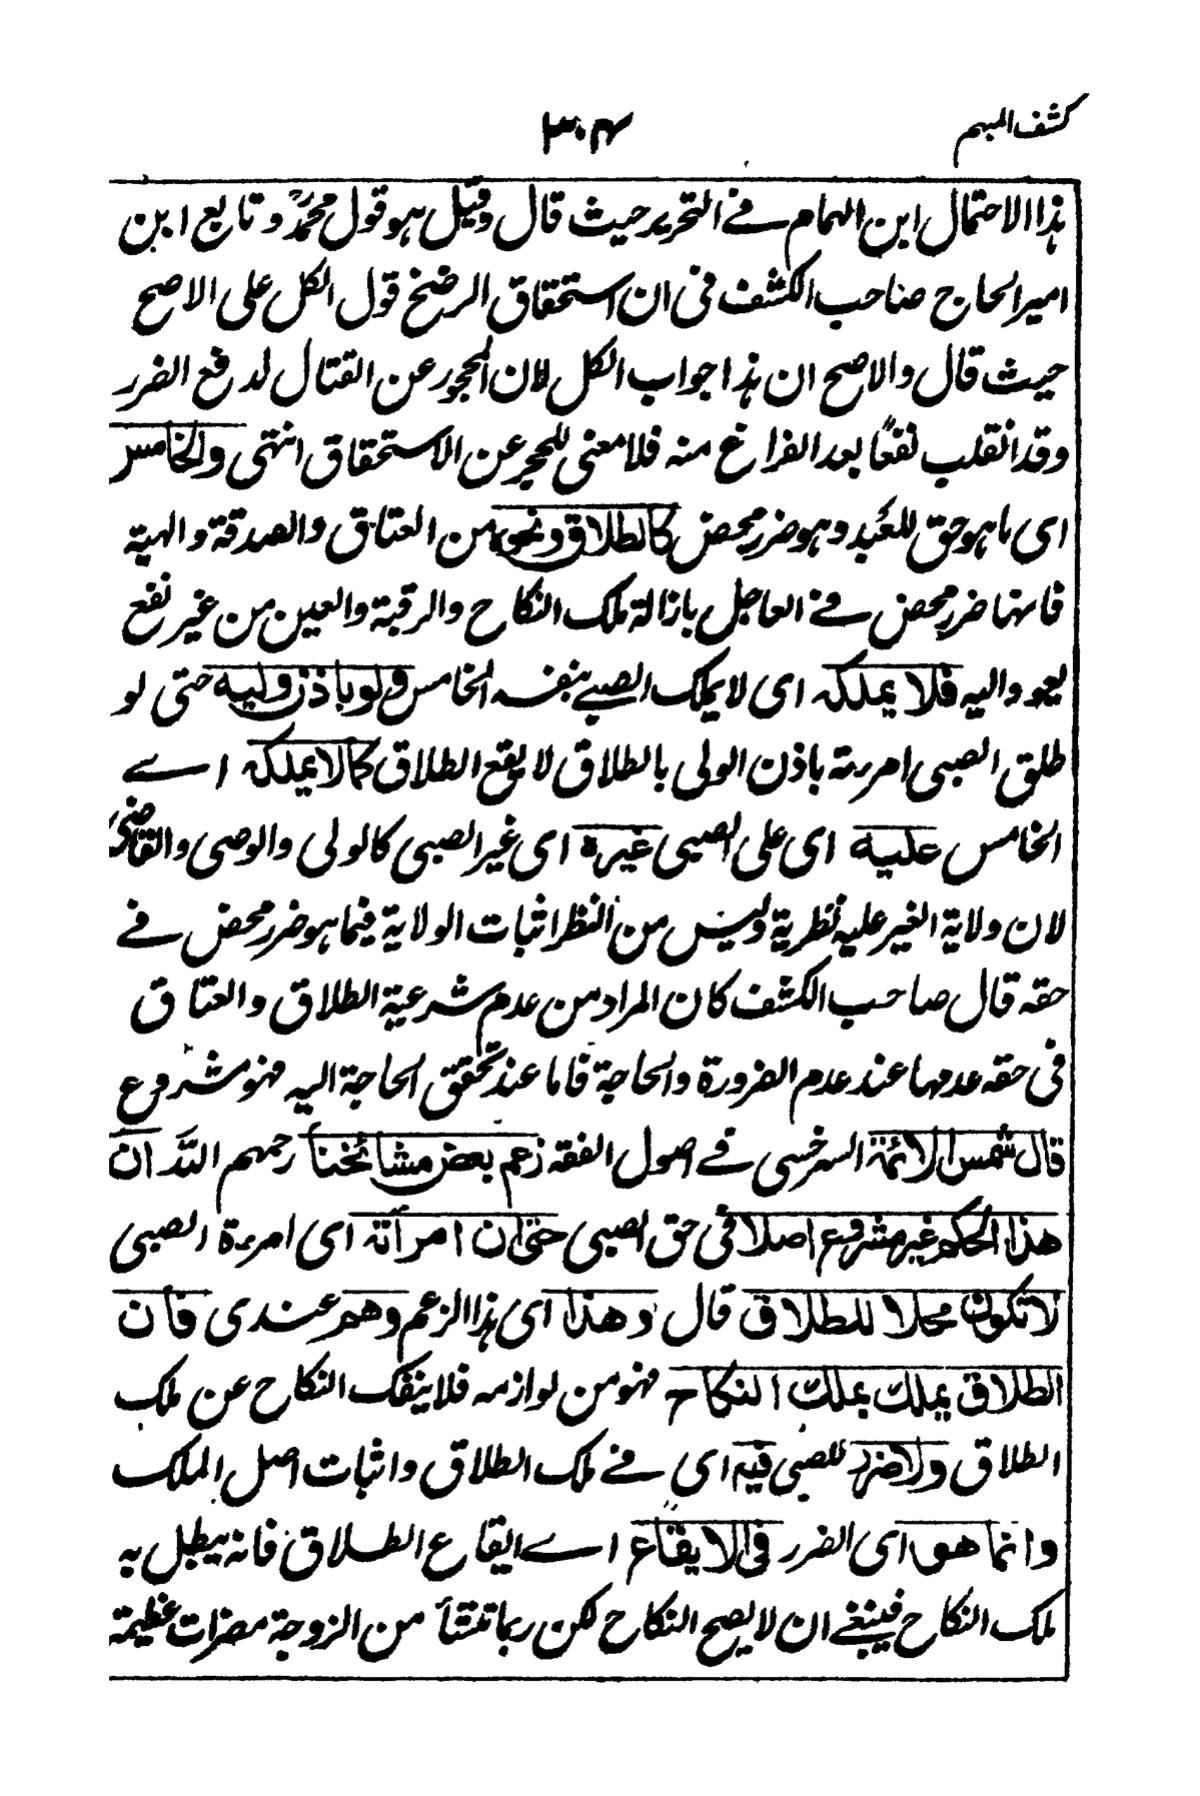 كشف المبهم
٣٠٤
هذا الاحتمال ابن الهمام في التحرير حيث قال وقيل هو قول محمدؒ وتابع ابن
امير الحاج صاحب الكشف في ان استحقاق الرضخ قول الكل على الاصح
حيث قال والاصح ان هذا جواب الكل لان المحجور عن القتال لدفع الضرر
وقد انقلب نفعًا بعد الفراغ منه فلا معنى للحجر عن الاستحقاق انتهى والخامس
اى ما هو حق للعبد وهو ضرر محض كالطلاق ونحوه من العتاق والصدقة والهبة
فانها ضرر محض في العاجل بازالة ملك النكاح والرقبة والعين من غير نفع
يعود اليه فلا يملكه اى لا يملك الصبي بنفسه الخامس ولو باذن وليه حتى لو
طلق الصبى امرءته باذن الولى بالطلاق لا يقع الطلاق كما لا يملكه اے
الخامس عليه اى على الصبى غيره اى غير الصبى كالولى والوصى والقاضى
لان ولاية الغير عليه نظرية وليس من النظر اثبات الولاية فيما هو ضرر محض في
حقه قال صاحب الكشف كان المراد من عدم شرعية الطلاق والعتاق
فى حقه عدمها عند عدم الضرورة والحاجة فاما عند تحقق الحاجة اليه فهو مشروع
قال شمس الائمة السرخسى في اصول الفقه زعم بعض مشائخنا رحمهم الله ان
هذا الحكم غير مشروع اصلا فى حق الصبى حتى ان امرأته اى امرءة الصبى
لا تكون محلا للطلاق قال وهذا اى هذا الزعم وهم عندى فان
الطلاق يملك بملك النكاح فهو من لوازمه فلا ينفك النكاح عن ملك
الطلاق ولا ضرر للصبى فيه اى في ملك الطلاق واثبات اصل الملك
وانما هو اى الضرر فى الايقاع اے ايقاع الطلاق فانه يبطل به
ملك النكاح فينبغي ان لا يصح النكاح لكن ربما تنشأ من الزوجة مضرات عظيمة